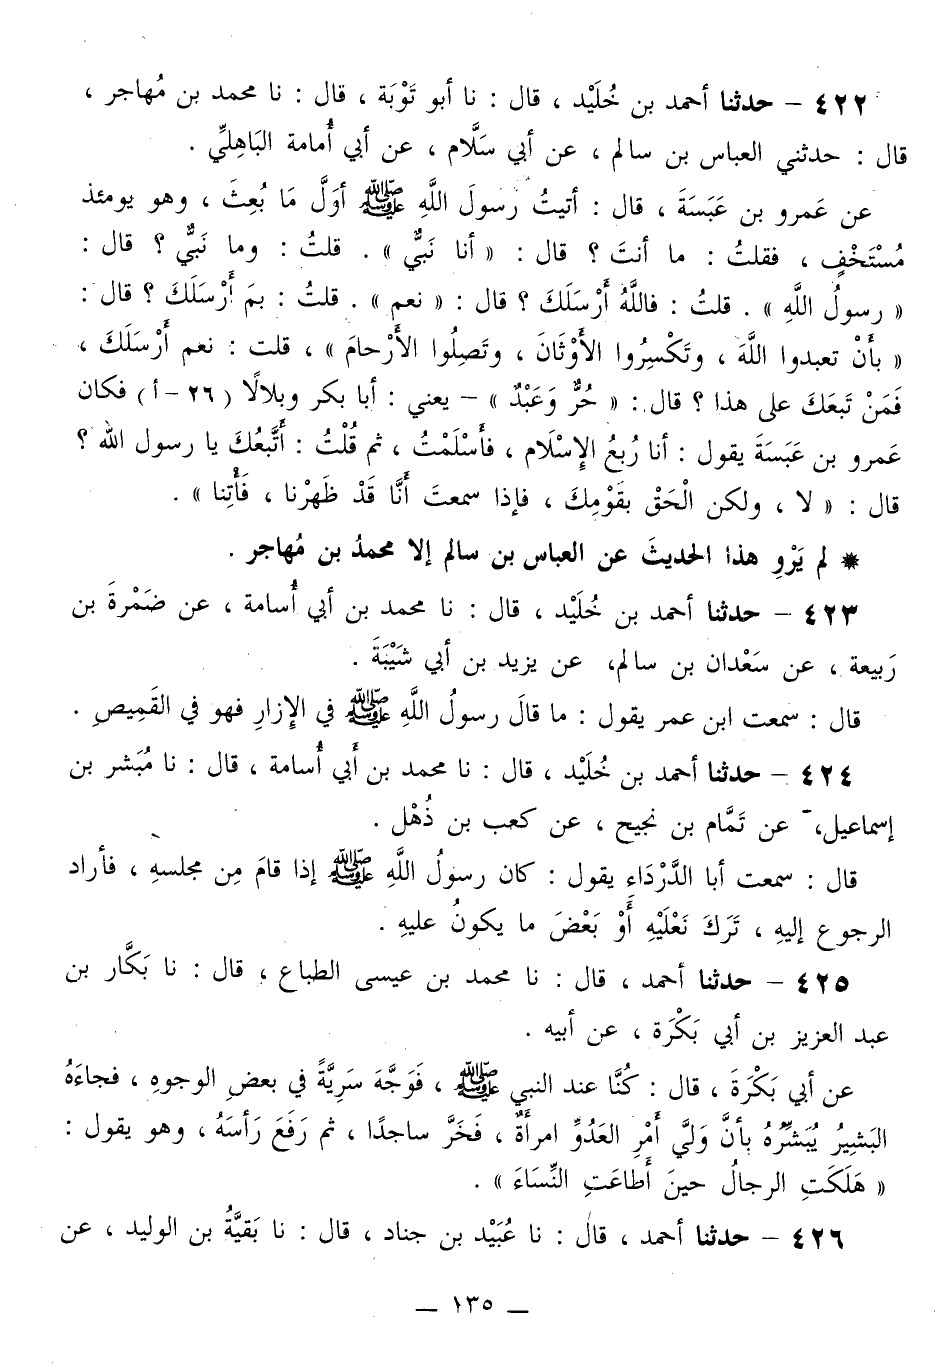 ٤٢٢ – حدثنا أحمد بن خُلَيْد ، قال : نا أبو تَوْبَة ، قال : نا محمد بن مُهاجر ،
قال : حدثني العباس بن سالم ، عن أبي سَلَّام ، عن أبي أُمامة البَاهِليِّ .
عن عَمرو بن عَبَسَةَ ، قال : أتيتُ رسولَ اللَّهِ ﷺ أوَلَّ مَا بُعِثَ ، وهو يومئذ
مُسْتَخْفٍ ، فقلتُ : ما أنتَ ؟ قال : « أنا نَبيٌّ » . قلتُ : وما نَبيٌّ ؟ قال :
« رسولُ اللَّهِ » . قلتُ : فاللَّهُ أَرْسَلَكَ ؟ قال : « نعم » . قلتُ : بمَ أَرْسَلَكَ ؟ قال :
« بأَنْ تعبدوا اللَّهَ ، وتَكْسِرُوا الأَوْثَانَ ، وتَصِلُوا الأَرْحامَ » ، قلت : نعم أَرْسَلَكَ ،
فَمَنْ تَبعَكَ على هذا ؟ قال : « حُرٌّ وَعَبْدٌ » – يعني : أبا بكر وبلالًا ( ٢٦ – أ ) فكان
عَمرو بن عَبَسَةَ يقول : أنا رُبعُ الإِسْلَام ، فأَسْلَمْتُ ، ثم قُلْتُ : أَتَّبعُكَ يا رسول الله ؟
قال : « لا ، ولكن الْحَقْ بقَوْمِكَ ، فإذا سمعتَ أَنَّا قَدْ ظَهَرْنا ، فَأْتِنا » .
* لم يَرْوِ هذا الحديثَ عن العباس بن سالم إلا محمدُ بن مُهاجر .
٤٢٣ – حدثنا أحمد بن خُلَيْد ، قال : نا محمد بن أبي أُسامة ، عن ضَمْرةَ بن
رَبيعة ، عن سَعْدان بن سالم، عن يزيد بن أبي شَيْبَةَ .
قال : سمعت ابن عمر يقول : ما قالَ رسولُ اللَّهِ ﷺ في الإِزارِ فهو في القَمِيصِ .
٤٢٤ – حدثنا أحمد بن خُلَيْد ، قال : نا محمد بن أَبي أُسامة ، قال : نا مُبَشر بن
إسماعيل، عن تَمَّام بن نجيح ، عن كعب بن ذُهْل .
قال : سمعت أبا الدَّرْدَاءِ يقول : كان رسولُ اللَّهِ ﷺ إذا قامَ مِن مجلسهِ ، فأراد
الرجوع إليهِ ، تَرَكَ نَعْلَيْهِ أَوْ بَعْضَ ما يكونُ عليهِ .
٤٢٥ – حدثنا أحمد ، قال : نا محمد بن عيسى الطباع ، قال : نا بَكَّار بن
عبد العزيز بن أبي بَكْرَة ، عن أبيه .
عن أبي بَكْرَةَ ، قال : كُنَّا عند النبي ﷺ ، فَوَجَّهَ سَرِيَّةً في بعضِ الوجوهِ ، فجاءَهُ
البَشِيرُ يُبَشِّرُهُ بأَنَّ وَليَّ أَمْرِ العَدُوِّ امرأَةٌ ، فَخَرَّ ساجدًا ، ثم رَفَعَ رَأسَهُ ، وهو يقول :
« هَلَكَتِ الرجالُ حينَ أَطاعَتِ النِّسَاءَ » .
٤٢٦ – حدثنا أحمد ، قال : نا عُبَيْد بن جناد ، قال : نا بَقيَّةُ بن الوليد ، عن
– ١٣٥ –